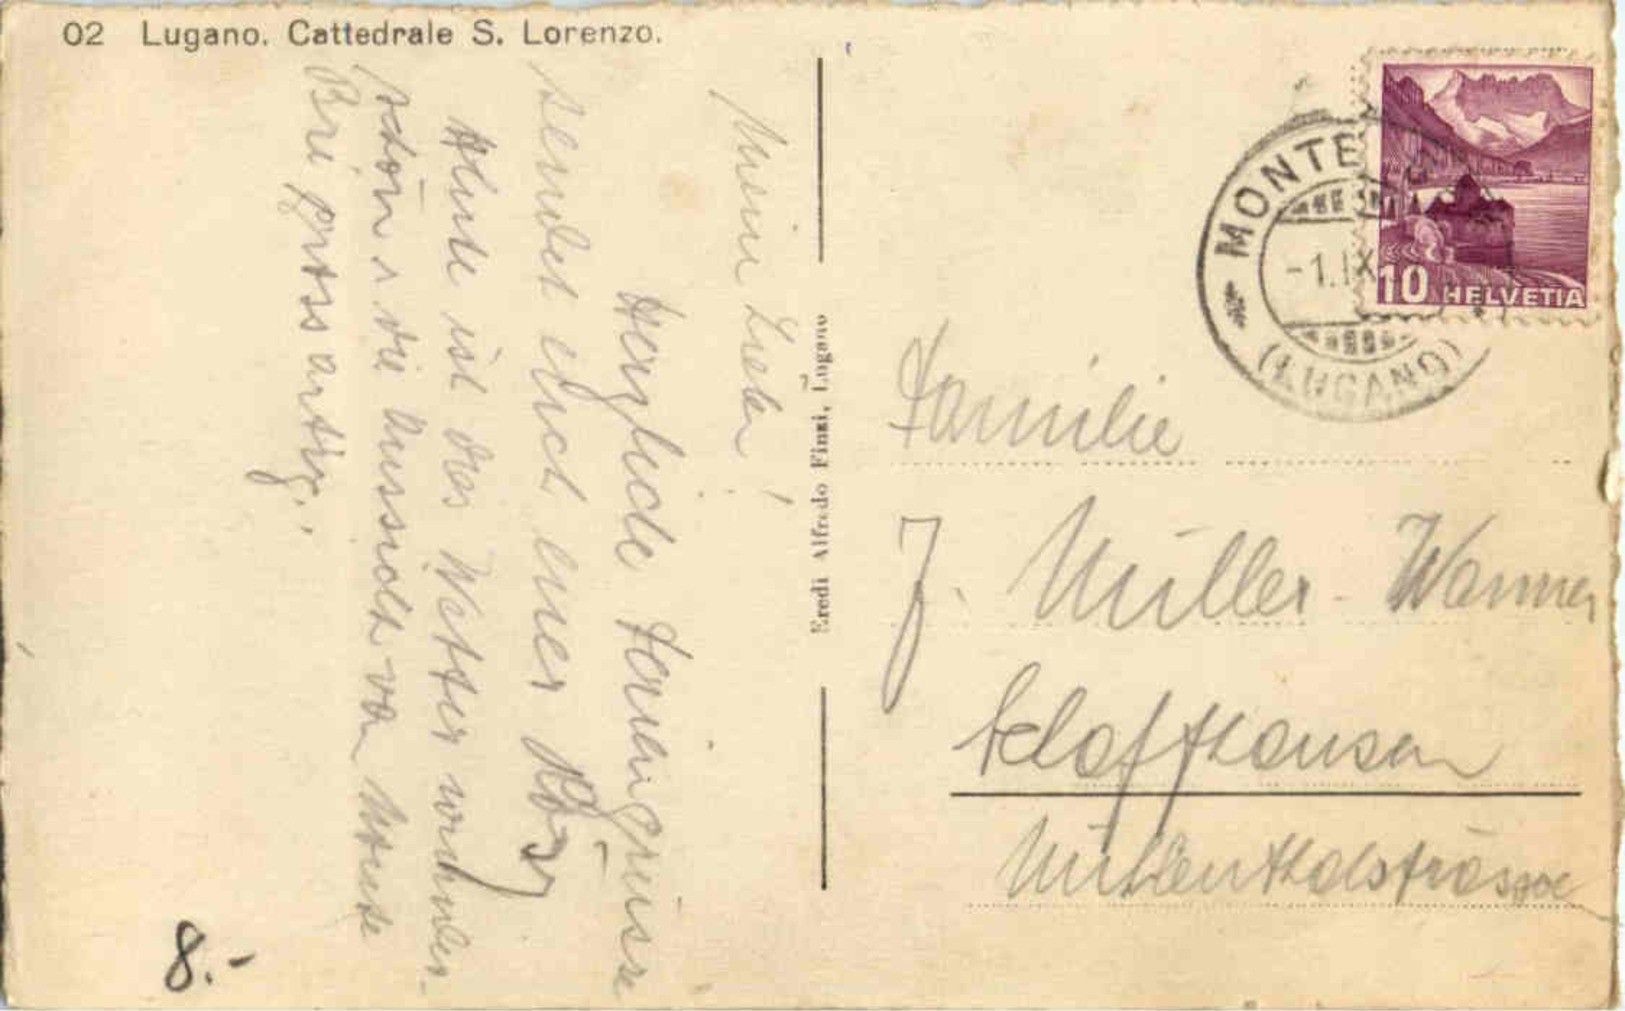 02 Lugano. Cattedrale S. Lorenzo.
Meine Lieben!
Herzliche Feriengrüsse
sendet Euch Euer
Heute ist das Wetter wunder-
schön u die Aussicht vom Monte
Brè grossartig.
Eredi Alfredo Finzi, Lugano
MONTE
-1.IX
(LUGANO)
10 HELVETIA
Familie
J. Müller-Wanner
Schaffhausen
Mühlenthalstrasse
8.-